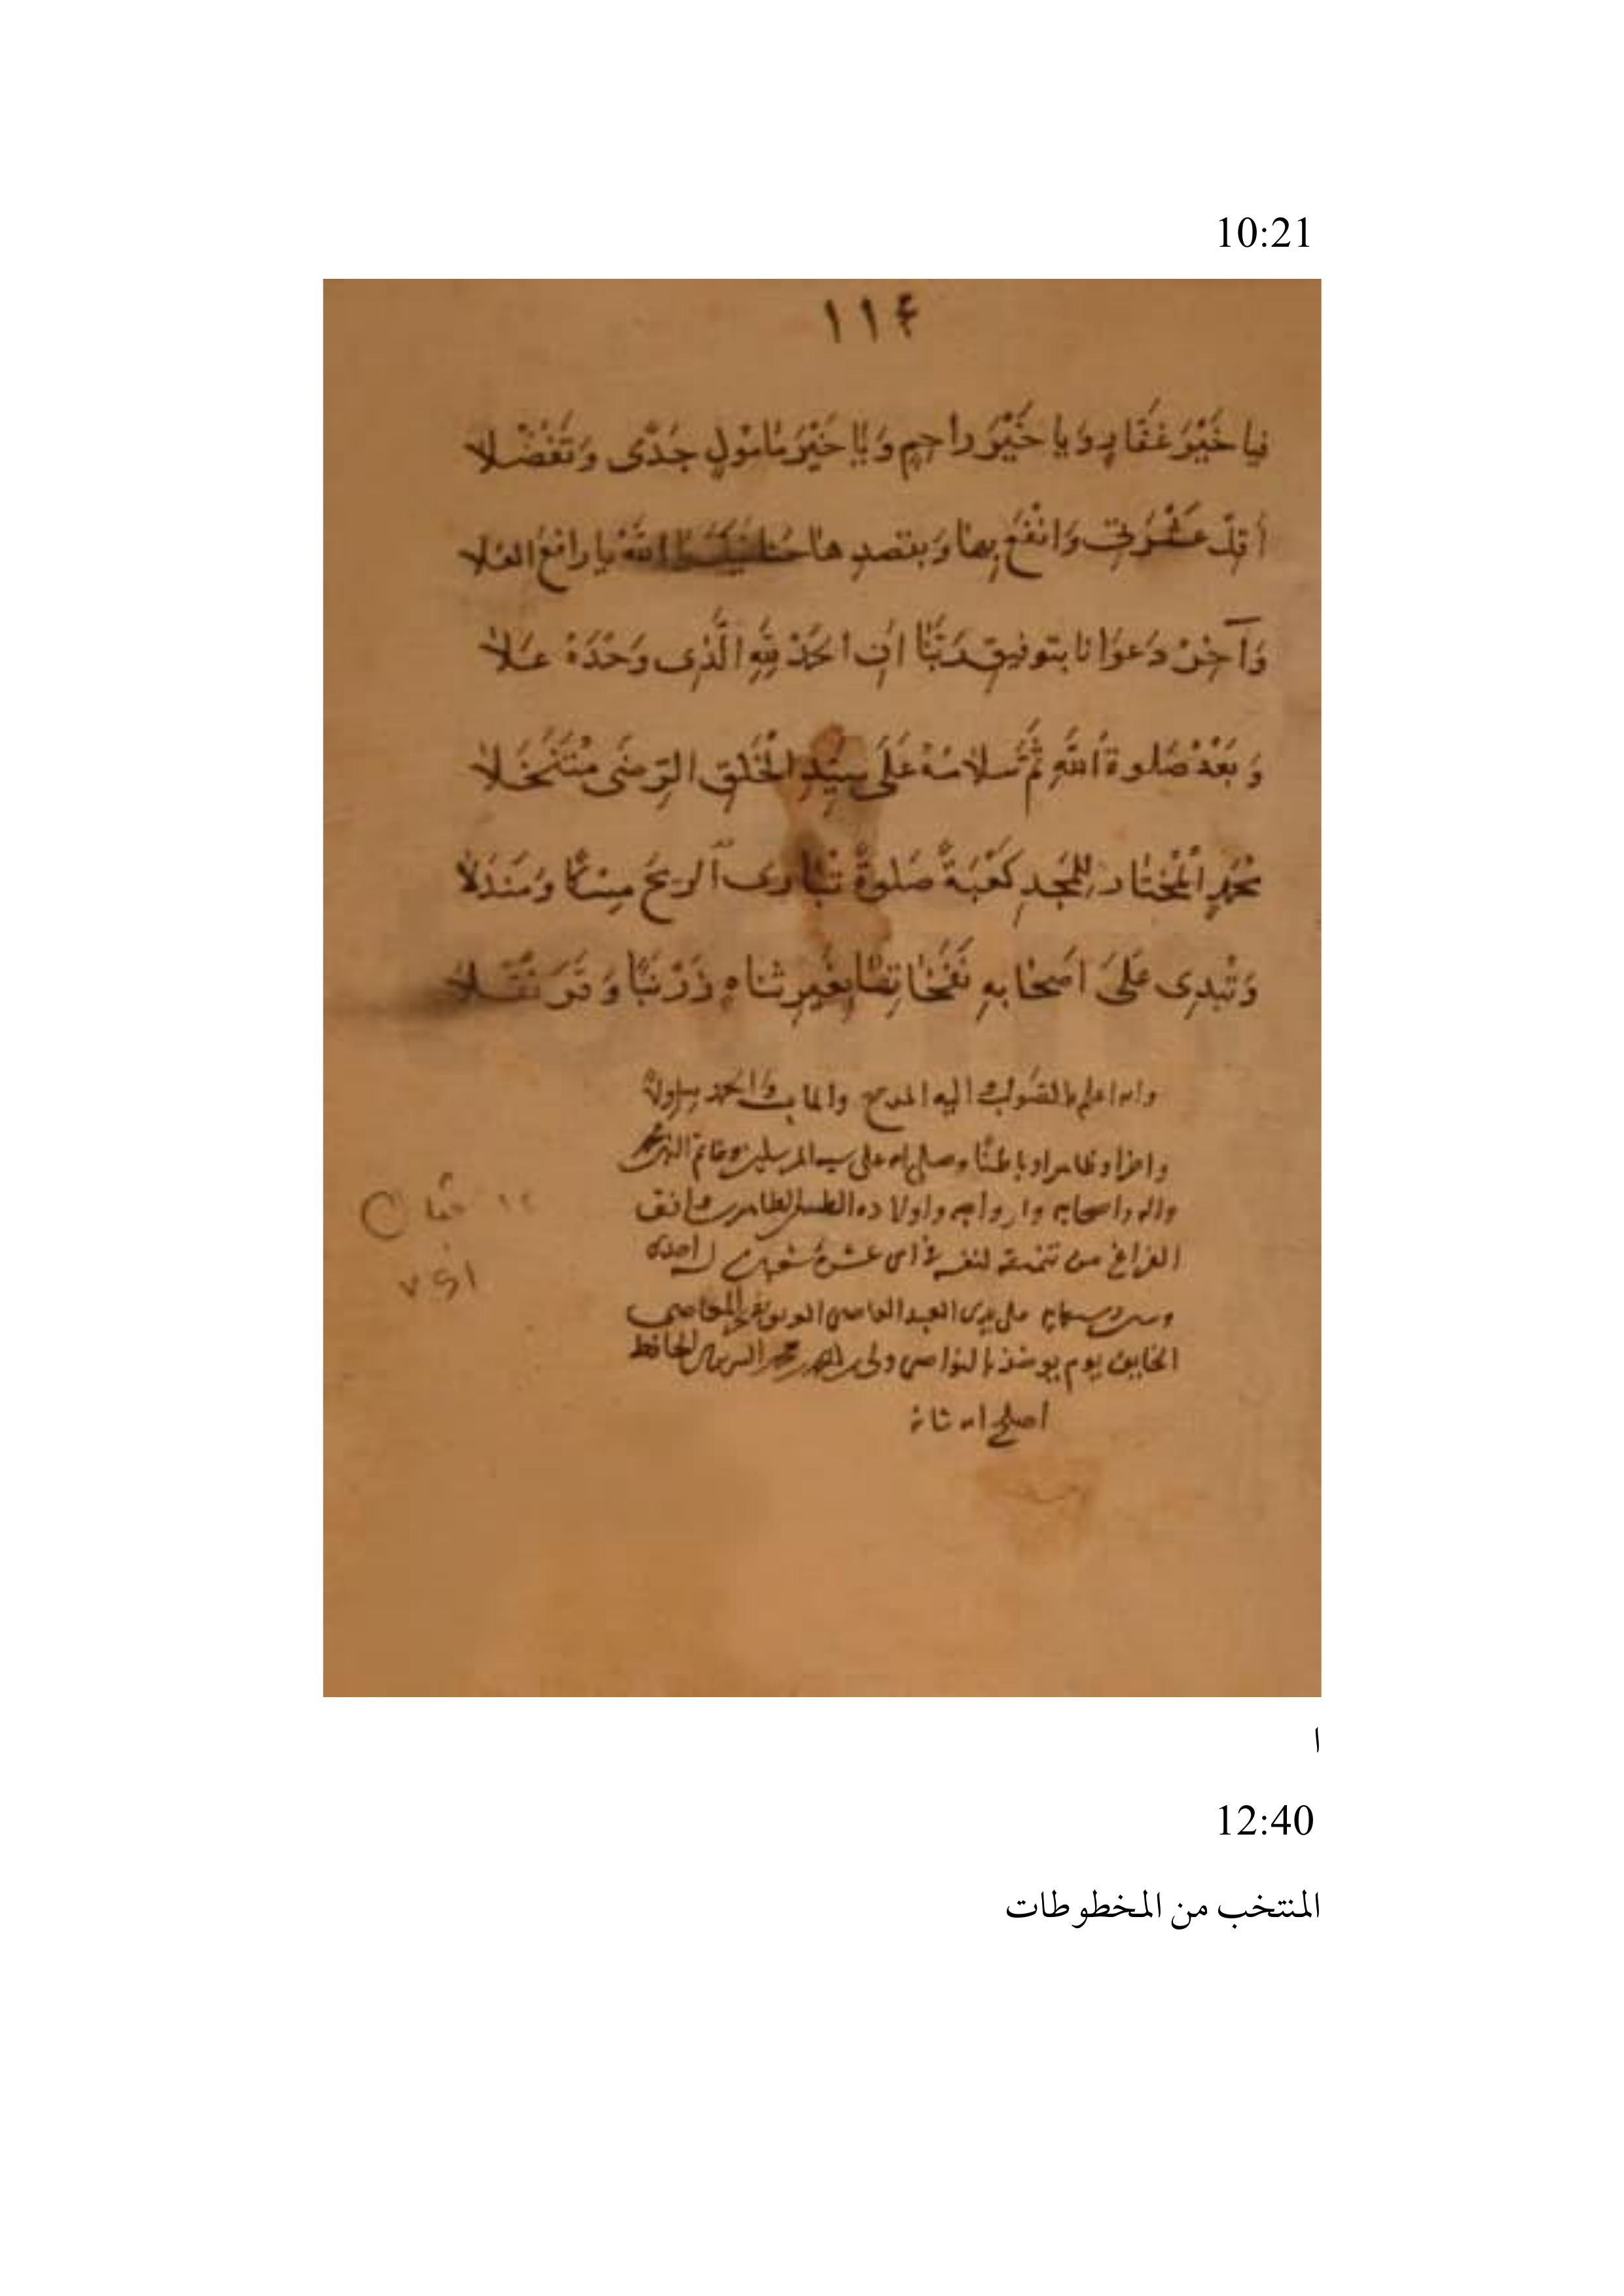 10:21
١١٤
فيا خَيْرَ غَفَّارٍ وَيا خَيْرَ راحِمٍ وَيَا خَيْرَ مَامُولٍ جَدًى وَتَفَضُّلا
أَقِلْ عَثْرَتِي وَانْفَعْ بِها وَبقصدِها حنانيك يا اللهُ يا رافعَ العُلا
وَآخِرُ دَعوَانا بتوفيقِ رَبِّنَا اَنِ الحَمْدُ لِلَّهِ الَّذِى وَحْدَهُ عَلَا
وَبَعْدُ صَلوةُ اللَّهِ ثُمَّ سَلامُهُ عَلَى سَيِّدِ الْخَلْقِ الرِّضَى مُتَنَخِّلا
مُحَمَّدٍ الْمُخْتَارِ لِلْمَجْدِ كَعْبَةً صَلوةً تُبَارِى ٱلرِيحَ مِسْكًا وَمَنْدَلا
وَتُبْدِى عَلَىَ اَصْحَابِهِ نَفَحَاتِهَا بِغَيْرِ تَنَاهٍ زَرْنَبًا وَقَرَنْفُلا
والله اعلم بالصواب اليه المرجع والماب والحمد لله اولا
واخرا وظاهرا وباطنًا وصلى الله على سيد المرسلين وخاتم النبيين محمد
واله واصحابه وازواجه واولاده الطيبين الطاهرين وافق
الفراغ من تنمقته لنفسه عشرة شعبان احدى
وسبعمايه على يدى العبد العاصى بالمعاصى
الخايف يوم يوخذ بالنواصى الحافظ
اصلح الله شانه
ا
12:40
المنتخب من المخطوطات